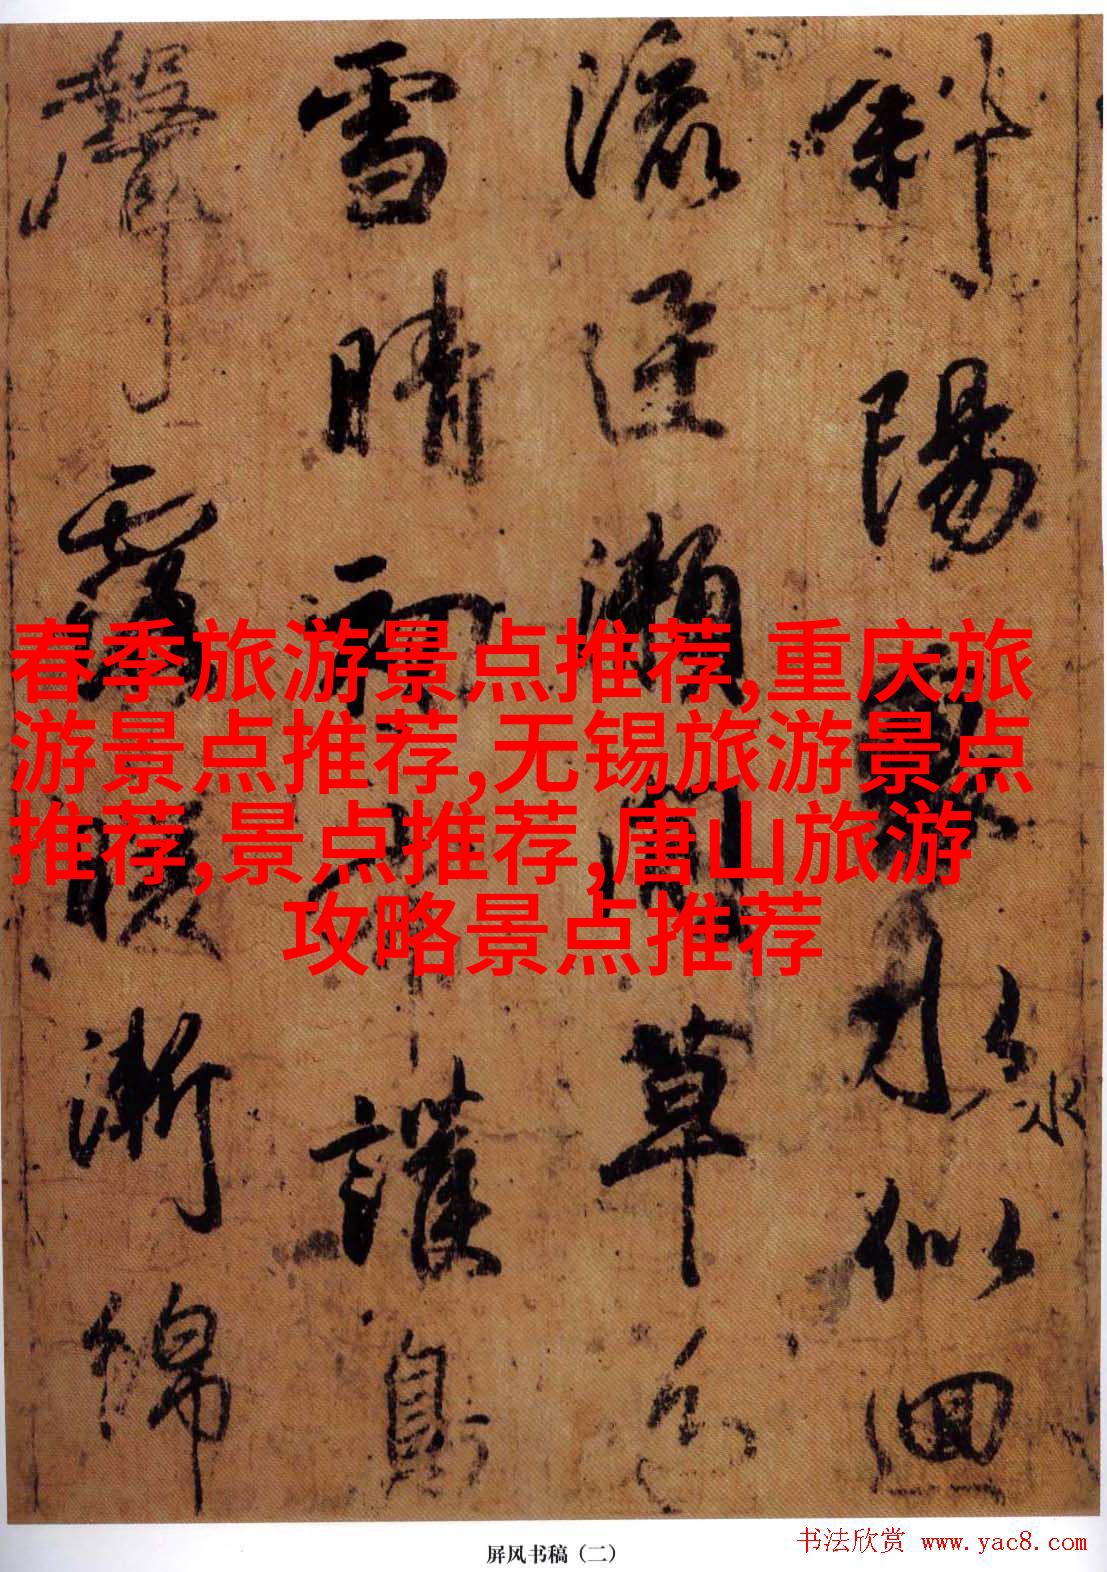 斜陽水似洄
流迸瀨草色
雪晴初護鳥
聲漸綿
春季旅游景点推荐,重庆旅
游景点推荐,无锡旅游景点
推荐,景点推荐,唐山旅游
攻略景点推荐
屏风书稿（二）
书法欣赏 www.yac8.com